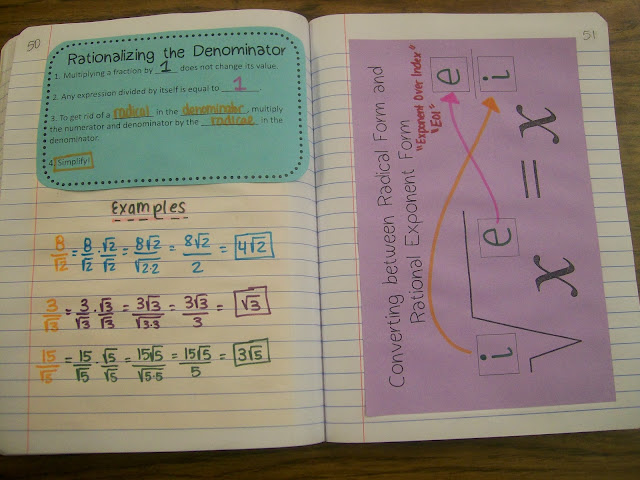 50
Rationalizing the Denominator
1. Multiplying a fraction by 1 does not change its value.
2. Any expression divided by itself is equal to 1.
3. To get rid of a radical in the denominator, multiply
the numerator and denominator by the radical in the
denominator.
4. Simplify!
Examples
8/√2 = 8/√2 · √2/√2 = 8√2/√2·2 = 8√2/2 = 4√2
3/√3 = 3/√3 · √3/√3 = 3√3/√3·3 = 3√3/3 = √3
15/√5 = 15/√5 · √5/√5 = 15√5/√5·5 = 15√5/5 = 3√5
51
Converting between Radical Form and
Rational Exponent Form
"Exponent Over Index"
"EOI"
i√x^e = x^e/i